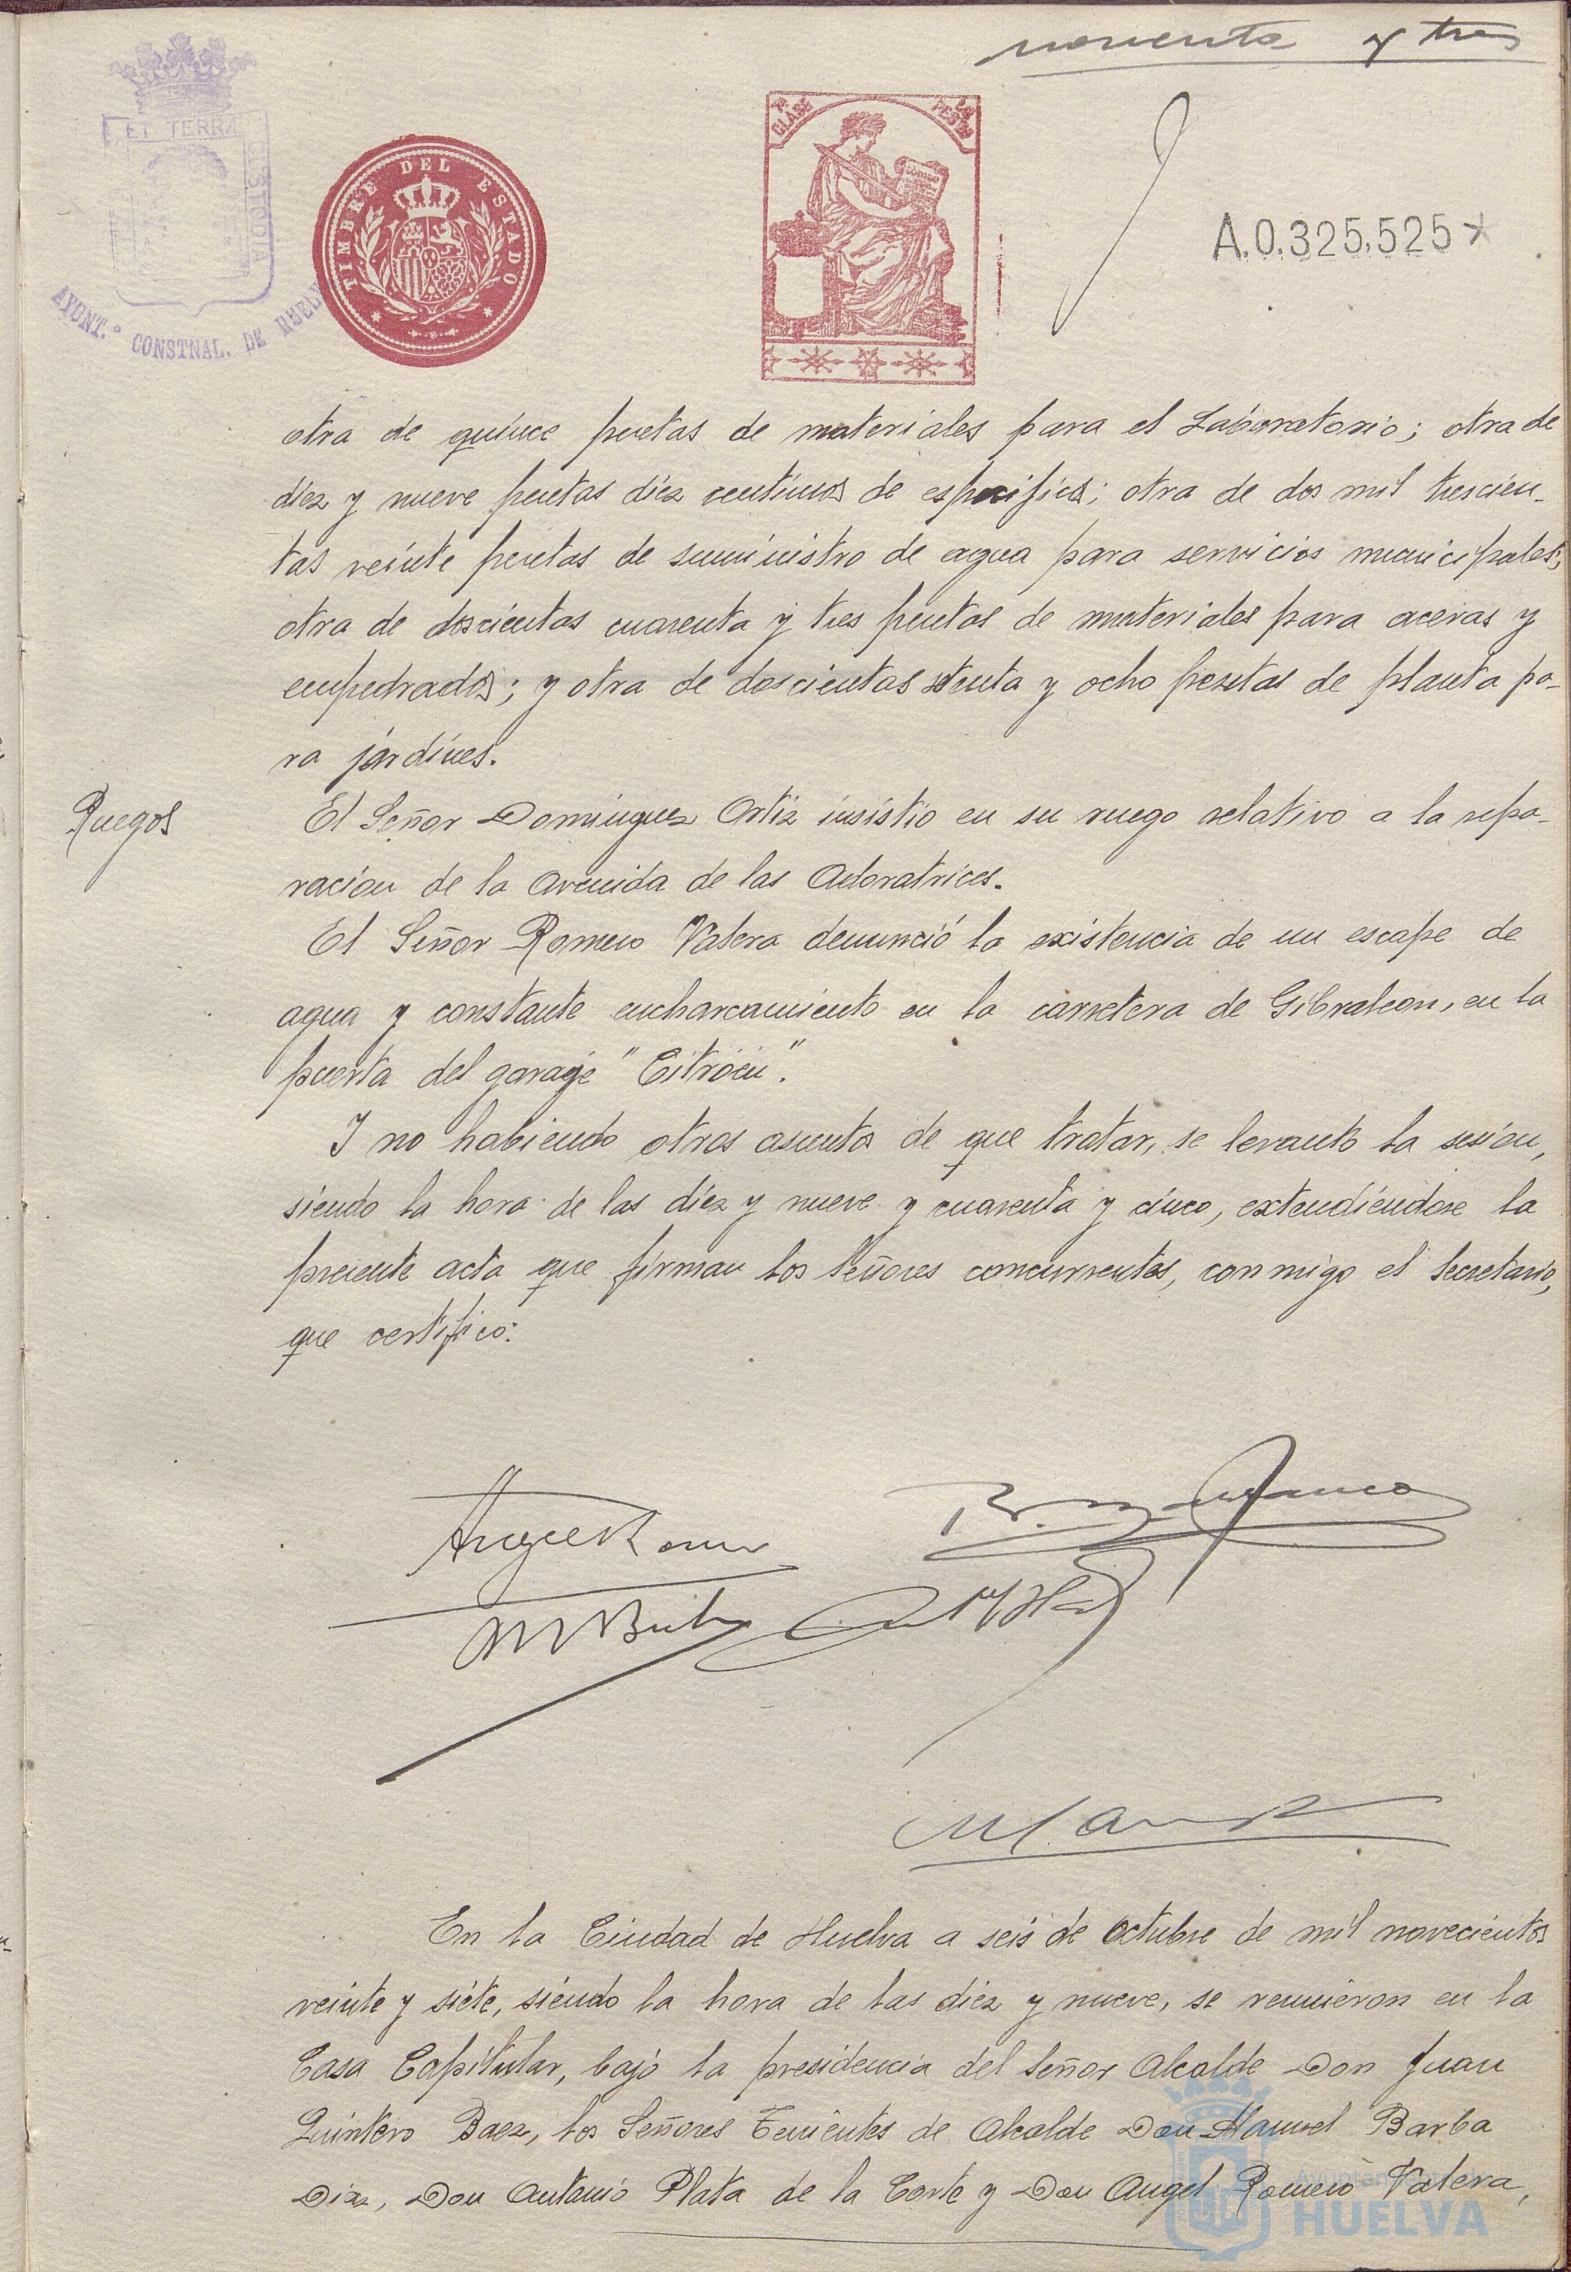 noventa y tres
ET TERRÆ
CUSTODIA
AYUNT.º CONSTNAL. DE HUELV
TIMBRE DEL ESTADO
7ª CLASE
PESETAS
A.0.325,525*
otra de quince pesetas de materiales para el Laboratorio; otra de
diez y nueve pesetas diez centimos de especificos; otra de dos mil trescien-
tas veinte pesetas de suministro de agua para servicios municipales;
otra de doscientas cuarenta y tres pesetas de materiales para aceras y
empedrados; y otra de doscientas setenta y ocho pesetas de planta pa-
ra jardines.
Ruegos
El Señor Dominguez Ortiz insistió en su ruego relativo a la repa-
racion de la Avenida de las Adoratrices.
El Señor Romero Valera denunció la existencia de un escape de
agua y constante encharcamiento en la carretera de Gibraleon, en la
puerta del garaje "Citröen".
Y no habiendo otros asuntos de que tratar, se levanto la sesion,
siendo la hora de las diez y nueve y cuarenta y cinco, extendiéndose la
presente acta que firman los Señores concurrentes, conmigo el Secretario,
que certifico:
Angel Romero
M Barba
En la Ciudad de Huelva a seis de Octubre de mil novecientos
veinte y siete, siendo la hora de las diez y nueve, se reunieron en la
Casa Capitular, bajo la presidencia del Señor Alcalde Don Juan
Quintero Baez, los Señores Tenientes de Alcalde Don Manuel Barba
Diaz, Don Antonio Plata de la Corte y Don Angel Romero Valera,
Ayuntamiento de
HUELVA